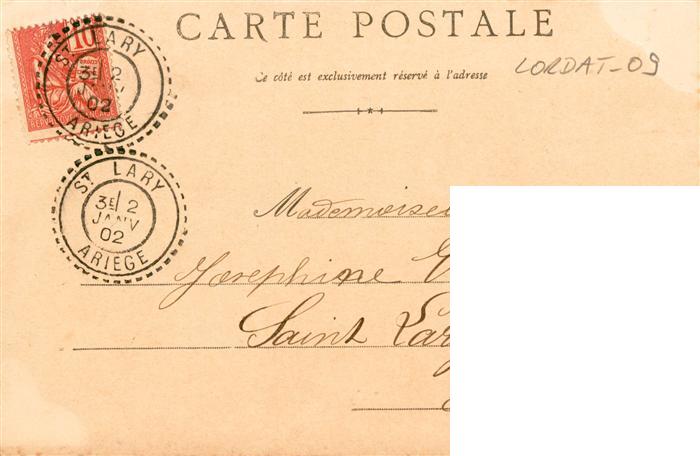 CARTE POSTALE
Ce côté est exclusivement réservé à l'adresse
LORDAT-09
10
ST LARY
3E 2
JANV
02
ARIEGE
ST LARY
3E 2
JANV
02
ARIEGE
Mademoise
Josephine
Saint Lar